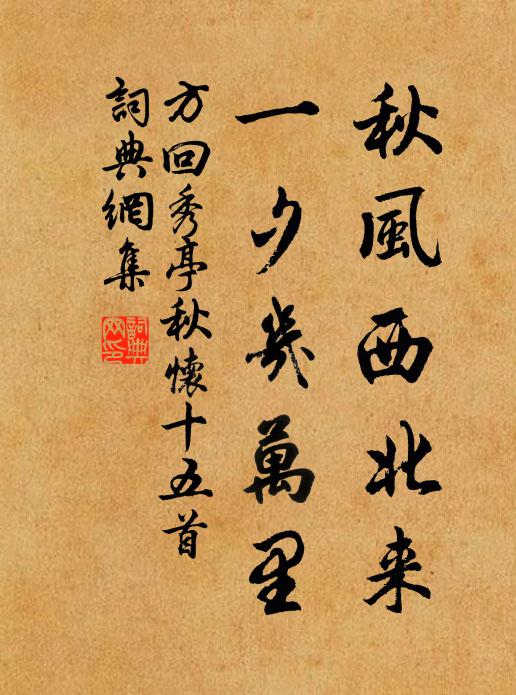 秋風西北来
一夕幾萬里
方回秀亭秋懷十五首
詞典網集
詞典網印